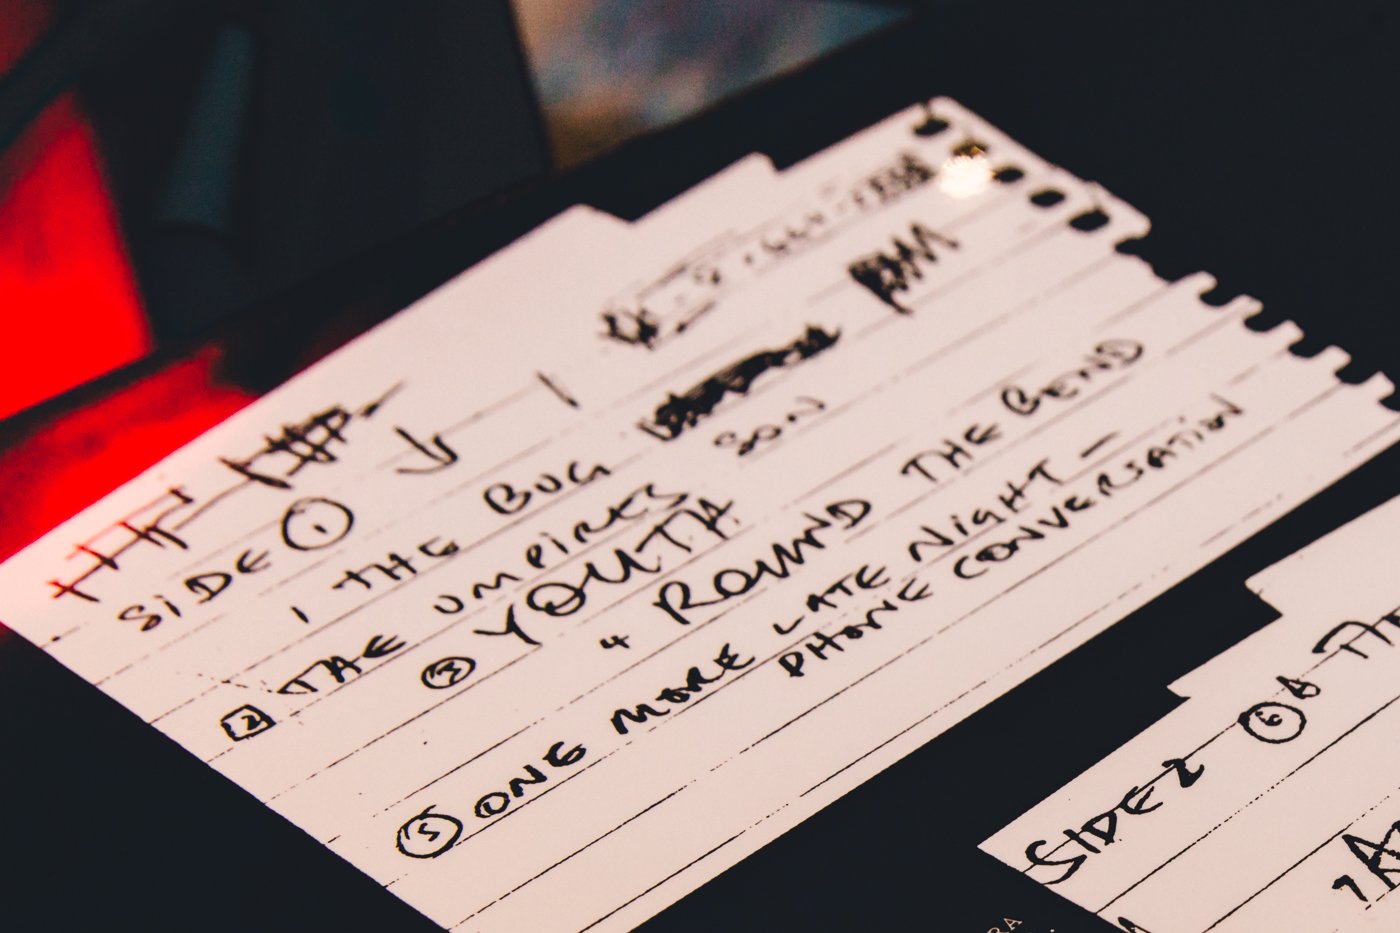 SIDE 1
1 THE BUG
SON
2 THE UMPIRES
3 YOUTH
4 ROUND THE BEND
5 ONE MORE LATE NIGHT —
PHONE CONVERSATION
SIDE 2
6 A
RA